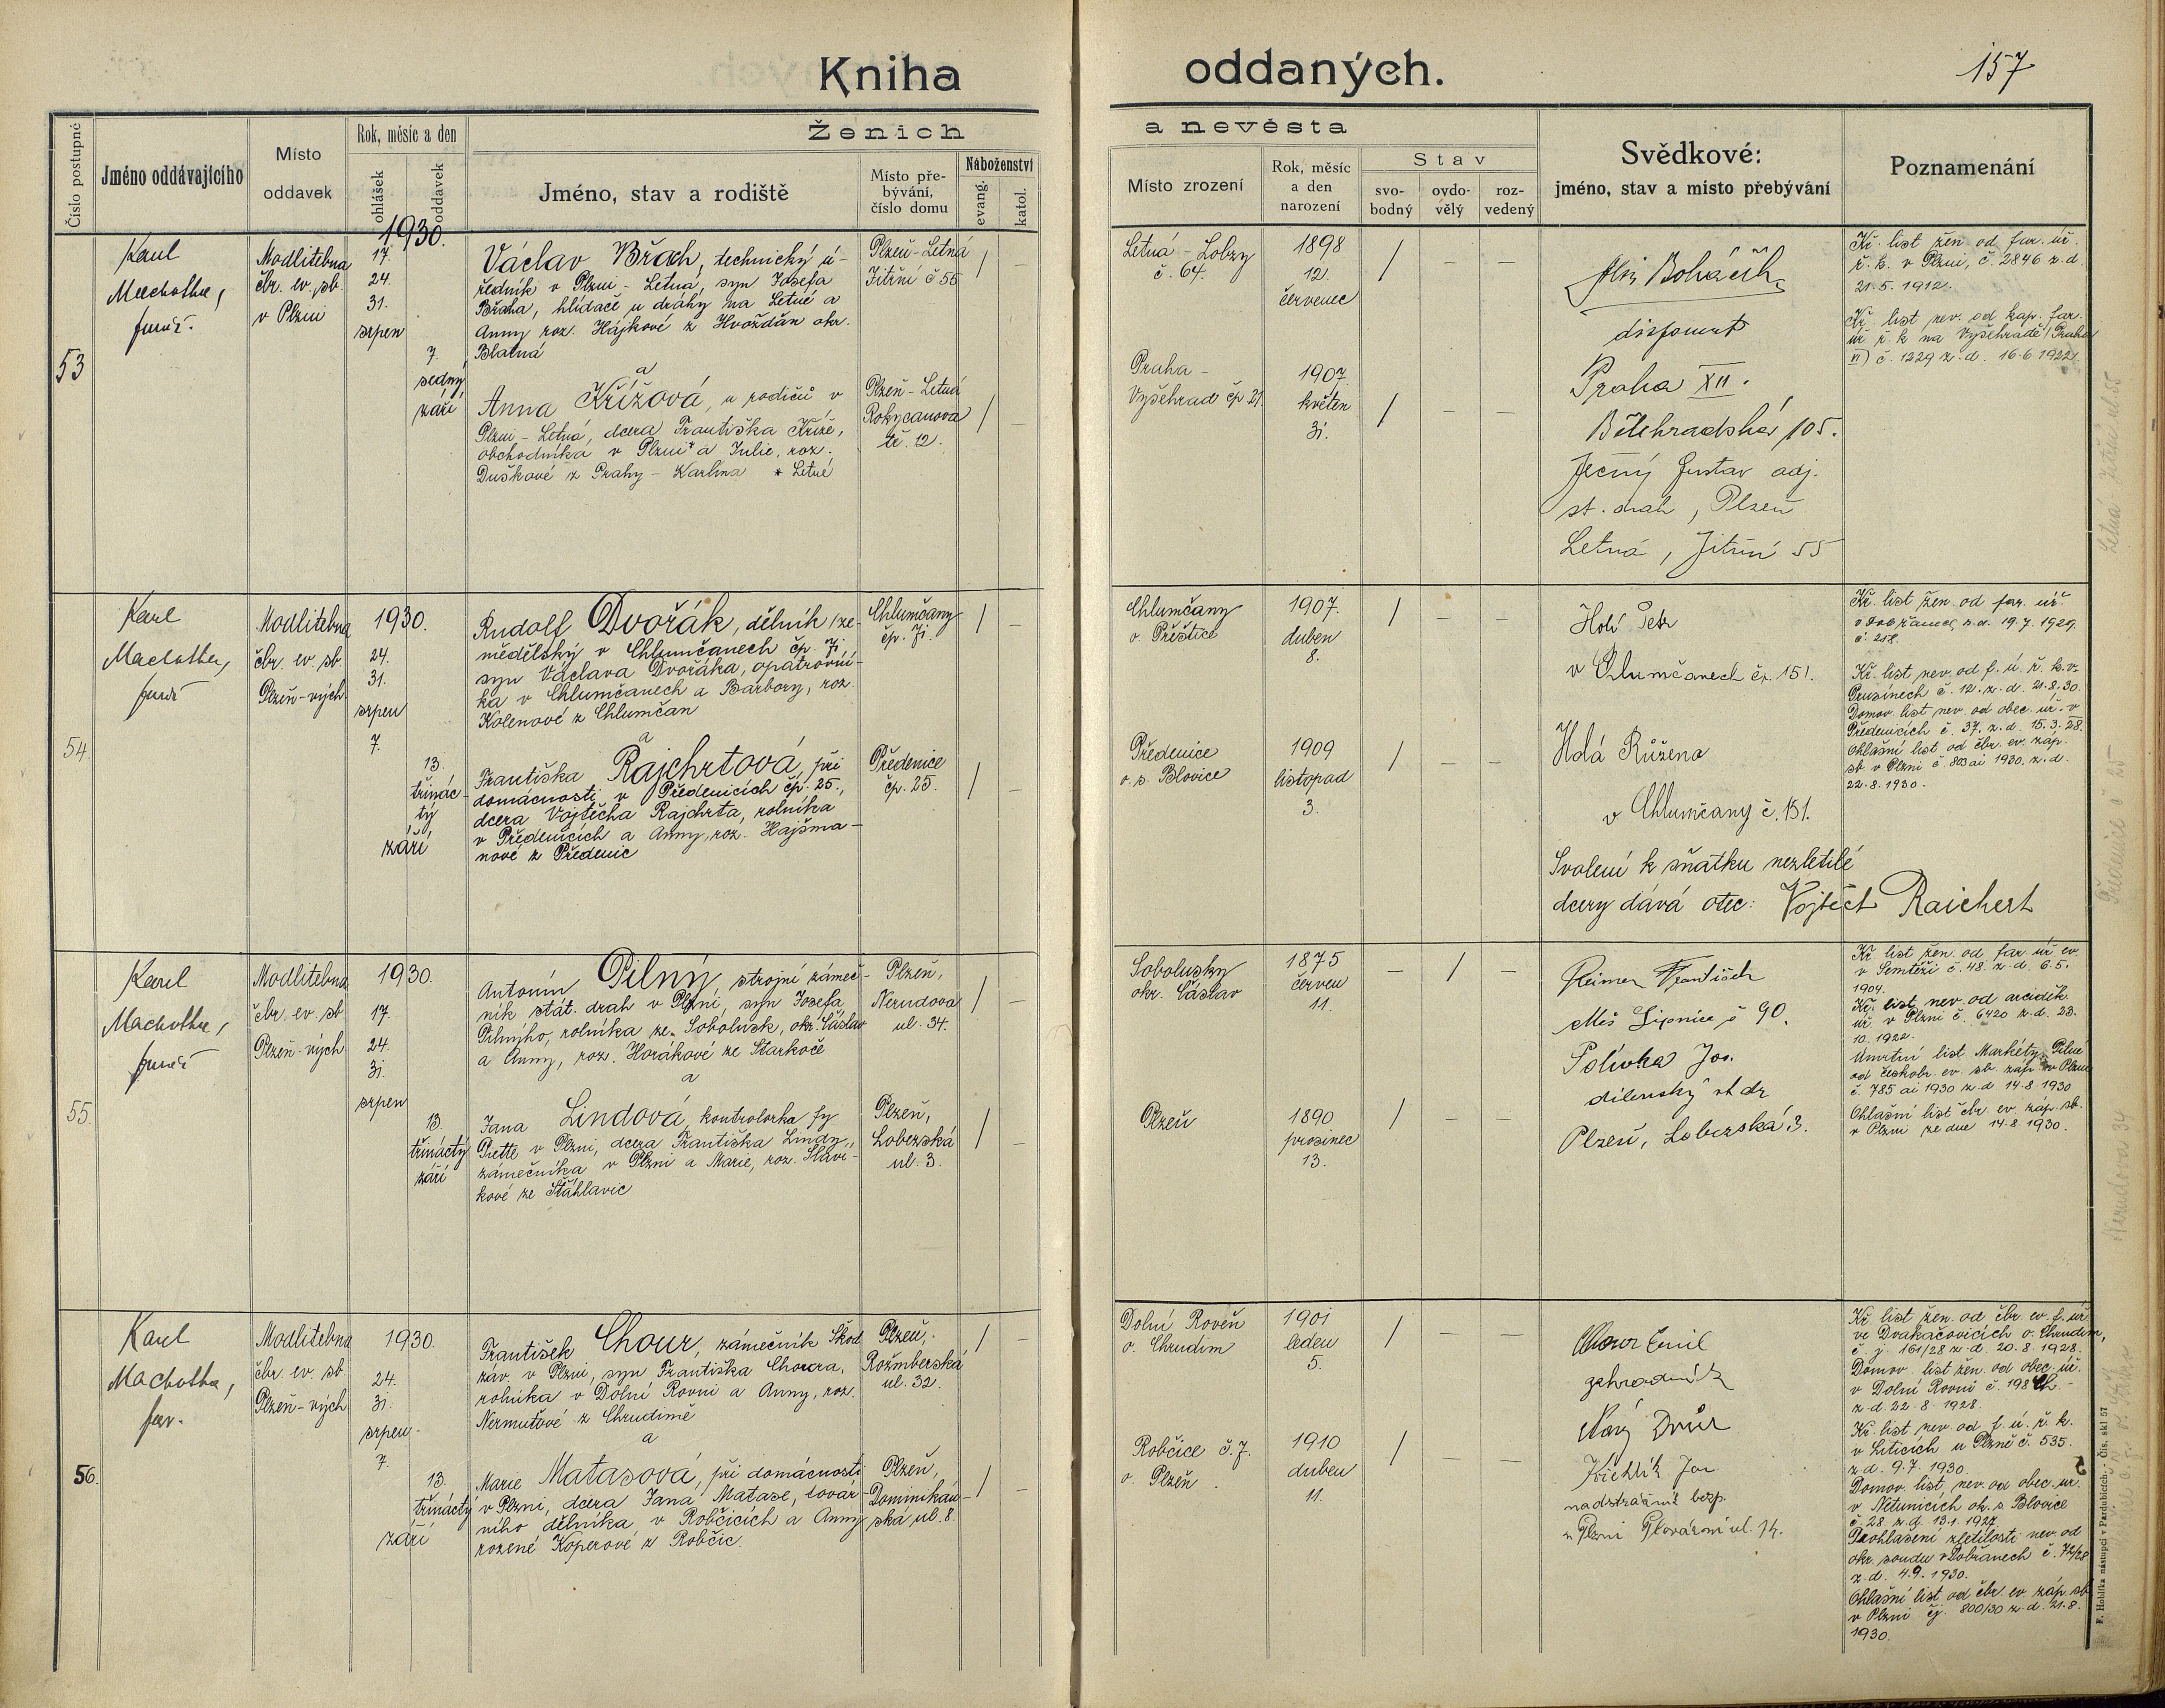 Kniha
oddaných.
157
Číslo postupné
Jméno oddávajícího
Místo
oddavek
Rok, měsíc a den
ohlášek
oddavek
Ženich
Jméno, stav a rodiště
Místo pře-
bývání,
číslo domu
Náboženství
evang.
katol.
a nevěsta
Místo zrození
Rok, měsíc
a den
narození
Stav
svo-
bodný
ovdo-
vělý
roz-
vedený
Svědkové:
jméno, stav a místo přebývání
Poznamenání
53
Karel
Machotka,
farář.
Modlitebna
čbr. ev. sb.
v Plzni
1930.
17.
24.
31.
srpen
7.
sedmý
září
Václav Břach, technický ú-
ředník v Plzni - Letná, syn Josefa
Břacha, hlídače u dráhy na Letné a
Anny roz. Hájkové z Hvožďan okr.
Blatná
a
Anna Křížová, u rodičů v
Plzni - Letná, dcera Františka Kříže,
obchodníka v Plzni* a Julie, roz.
Duškové z Prahy - Karlína * Letné
Plzeň - Letná
Jitřní č 55
Plzeň - Letná
Rokycanova
tř. 12.
Letná - Lobzy
č. 64.
1898
12.
červenec
/ - -
Praha -
Vyšehrad čp 21.
1907.
květen
31.
/ - -
Alois Boháček
disponent
Praha XII.
Bělehradská 105.
Ječný Gustav adj.
st. drah, Plzeň
Letná, Jitřní 55
Kř. list žen. od far. úř.
ř. k. v Plzni, č. 2846 z. d.
21. 5. 1912.
Kř. list nev. od kap. far.
úř. ř. k. na Vyšehradě (Praha
VI) č. 1229 z. d. 16. 6 1922.
54.
Karel
Machotka,
farář
Modlitebna
čbr. ev. sb.
Plzeň - vých.
1930.
24.
31.
srpen
7.
13.
třinác-
tý
září
Rudolf Dvořák, dělník /ze-
mědělský v Chlumčanech čp. 71
syn Václava Dvořáka, opatrovní-
ka v Chlumčanech a Barbory, roz.
Kolenové z Chlumčan
a
Františka Rajchrtová, při
domácnosti v Předenicích čp. 25.,
dcera Vojtěcha Rajchrta, rolníka
v Předenicích a Anny, roz. Hajšma-
nové z Předenic
Chlumčany
čp. 71.
Předenice
čp. 25.
Chlumčany
o. Přeštice
1907.
duben
8.
/ - -
Předenice
o. s. Blovice
1909
listopad
3.
/ - -
Holý Petr
v Chlumčanech čp. 151.
Holá Růžena
v Chlumčany č. 151.
Svolení k sňatku nezletilé
dcery dává otec: Vojtěch Raichert
Kř. list žen. od far. úř.
v Dobřanech z. d. 19. 7. 1929.
č. 218.
Kř. list nev. od f. ú. ř. k. v
Prusinech č. 12. z. d. 21. 8. 30.
Domov. list nev. od obec. úř. v
Předenicích č. 37. z. d. 15. 3. 28.
Ohlašní list od čbr. ev. záp.
sb. v Plzni č. 803 ai 1930. z. d.
22. 8. 1930.
55.
Karel
Machotka,
farář
Modlitebna
čbr. ev. sb
Plzeň - vých.
1930.
17.
24.
31.
srpen
13.
třináctý
září
Antonín Pilný, strojní zámeč-
ník stát. drah v Plzni, syn Josefa
Pilnýho, rolníka ze Sobolusk, okr. Čáslav
a Anny, roz. Horákové ze Starkoče
a
Jana Lindová, kontrolorka fy
Piette v Plzni, dcera Františka Lindy,
zámečníka v Plzni a Marie, roz. Slaví-
kové ze Šťáhlavic
Plzeň,
Nerudova
ul. 34.
Plzeň,
Lobezská
ul. 3.
Sobolusky
okr. Čáslav
1875
červen
11.
- / -
Plzeň
1890
prosinec
13.
/ - -
Reimer František
Měš Lipnice č 90.
Polívka Jos.
dílenský st dr
Plzeň, Lobezská 3.
Kř. list žen. od far. úř. ev
v Semtěši č. 48. z. d. 6. 5.
1904.
Kř. list nev. od arciděk.
úř. v Plzni č. 6420 z. d. 23.
10. 1922.
Úmrtní list Markéty Pilné
od českobr. ev. sb. záp. v Plzni
č. 785 ai 1930 z. d 14. 8. 1930
Ohlašní list čbr. ev. záp. sb.
v Plzni ze dne 14. 8. 1930.
56.
Karel
Machotka,
far.
Modlitebna
čbr. ev. sb
Plzeň - vých
1930.
24.
31.
srpen
7.
13.
třináctý
září
František Chour, zámečník Škod.
záv. v Plzni, syn Františka Choura,
rolníka v Dolní Rovni a Anny, roz.
Nermuťové z Chrudimě
a
Marie Matasová, při domácnosti
v Plzni, dcera Jana Matase, továr-
ního dělníka v Robčicích a Anny
rozené Koperové z Robčic.
Plzeň,
Rožmberská
ul. 32.
Plzeň,
Dominikán-
ská ul. 8.
Dolní Roveň
o. Chrudim
1901
leden
5.
/ - -
Robčice č. 7.
o. Plzeň
1910
duben
11.
/ - -
Chour Emil
zahradník
Nový Dvůr
Jan
v Plzni Plovární ul. 14.
Kř. list žen. od čbr. ev. f. úř
ve Dvakačovicích o. Chrudim,
č. j. 161/28 z. d. 20. 8. 1928.
Domov. list žen. od obec. úř.
v Dolní Rovni č. 198
z. d. 22. 8. 1928.
Kř. list nev. od f. ú. ř. k.
v Liticích u Plzně č. 535.
z d. 9. 7. 1930.
Domov. list, nev. od obec. úř.
v Netunicích ok. s. Blovice
č. 28. z. d. 13. 1. 1927.
Prohlášení zletilosti nev. od
okr. soudu v Dobřanech č. 72/28
z. d. 4. 9. 1930.
Ohlašní list od čbr. ev. záp. sb
v Plzni čj. 800/30 z. d. 21. 8.
1930.
Předenice č 25
Nerudova 34
F. Hoblíka nástupci v Pardubicích. Čís. skl 57